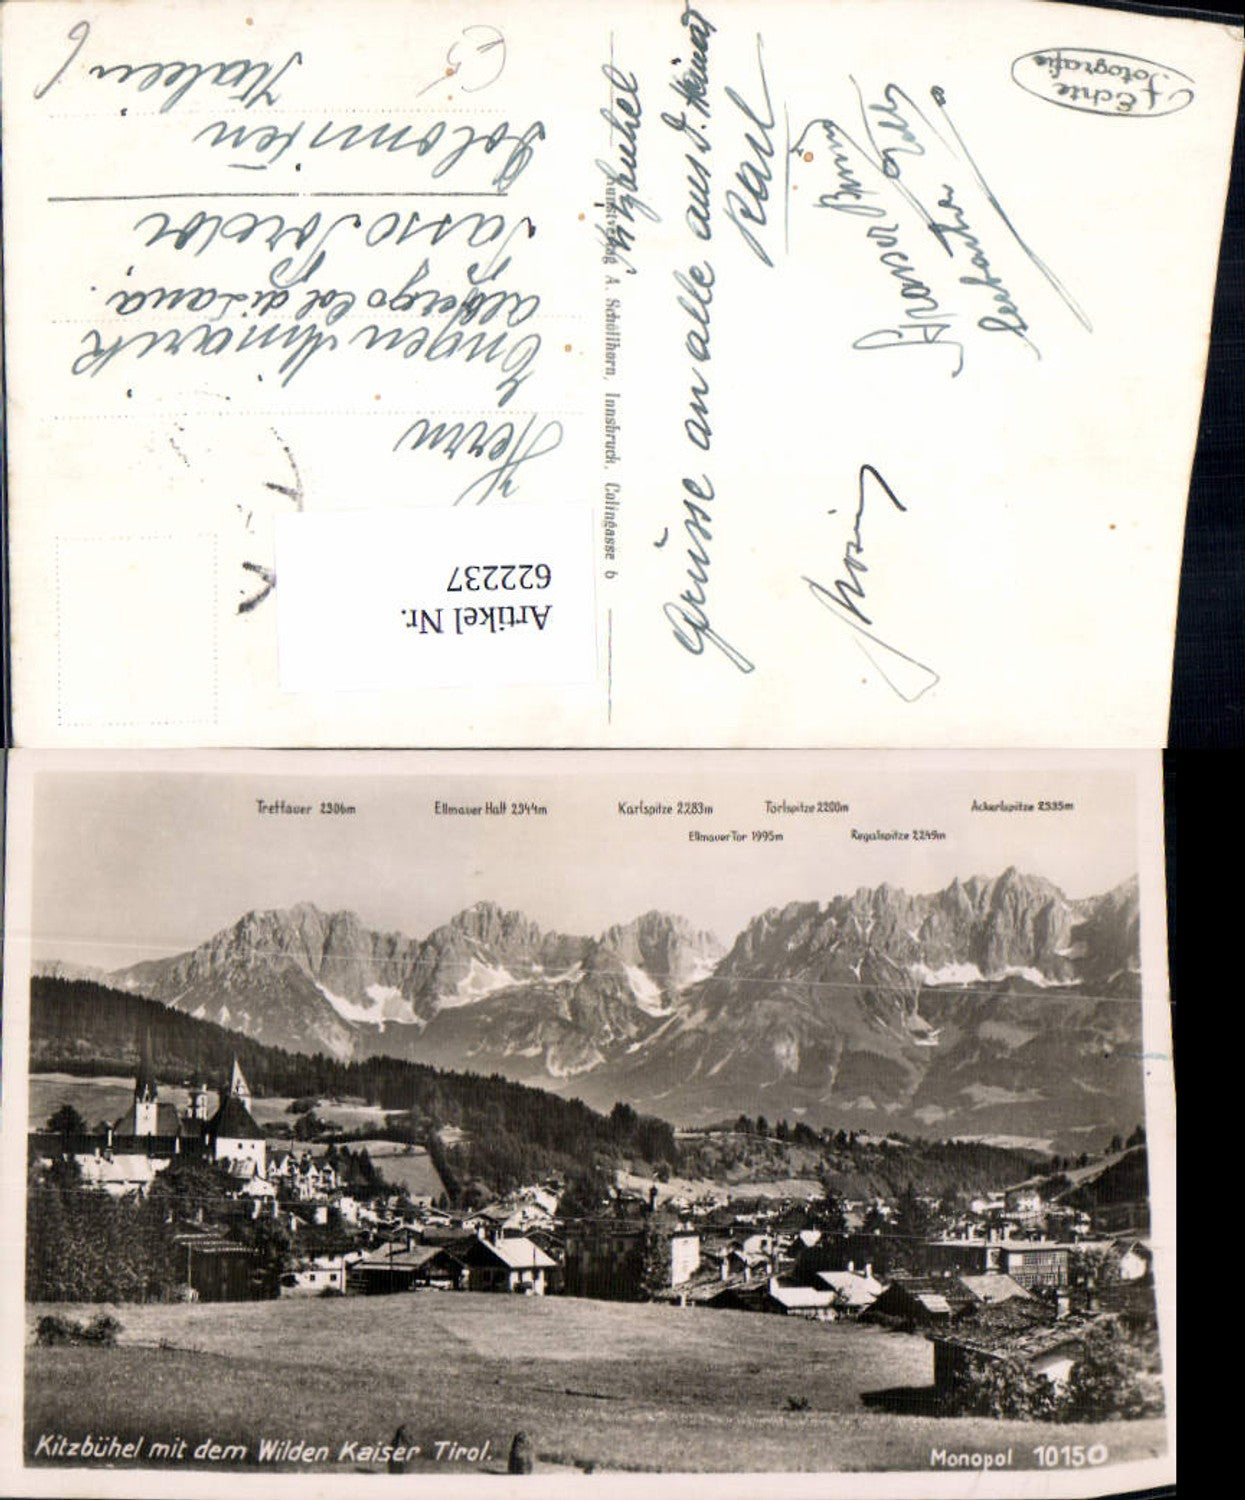 Echte
Fotografie
Kitzbühel
Grüsse an alle aus d. Heimat
Karl
Kunstverlag A. Schöllhorn, Innsbruck, Colingasse 6
Herrn
Eugen
albergo Col di Lana.
Passo Pordoi
Dolomiten
Italien
Artikel Nr.
622237
Treffauer 2306m
Ellmauer Halt 2344m
Karlspitze 2283m
Törlspitze 2200m
Ackerlspitze 2335m
Ellmauer Tor 1995m
Regalspitze 2249m
Kitzbühel mit dem Wilden Kaiser Tirol.
Monopol 10150